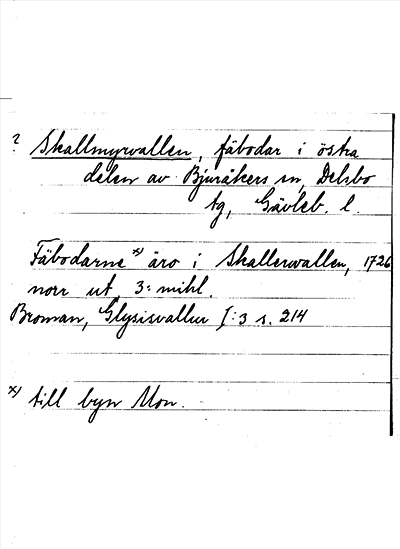 ? Skallmyrvallen, fäbodar i östra
delen av Bjuråkers sn, Delsbo
tg, Gävleb. l.
Fäbodarne x) äro i Skallervallen, 1726
norr ut 3: mihl.
Broman, Glysisvallur I:3 s. 214
x) till byn Mon.